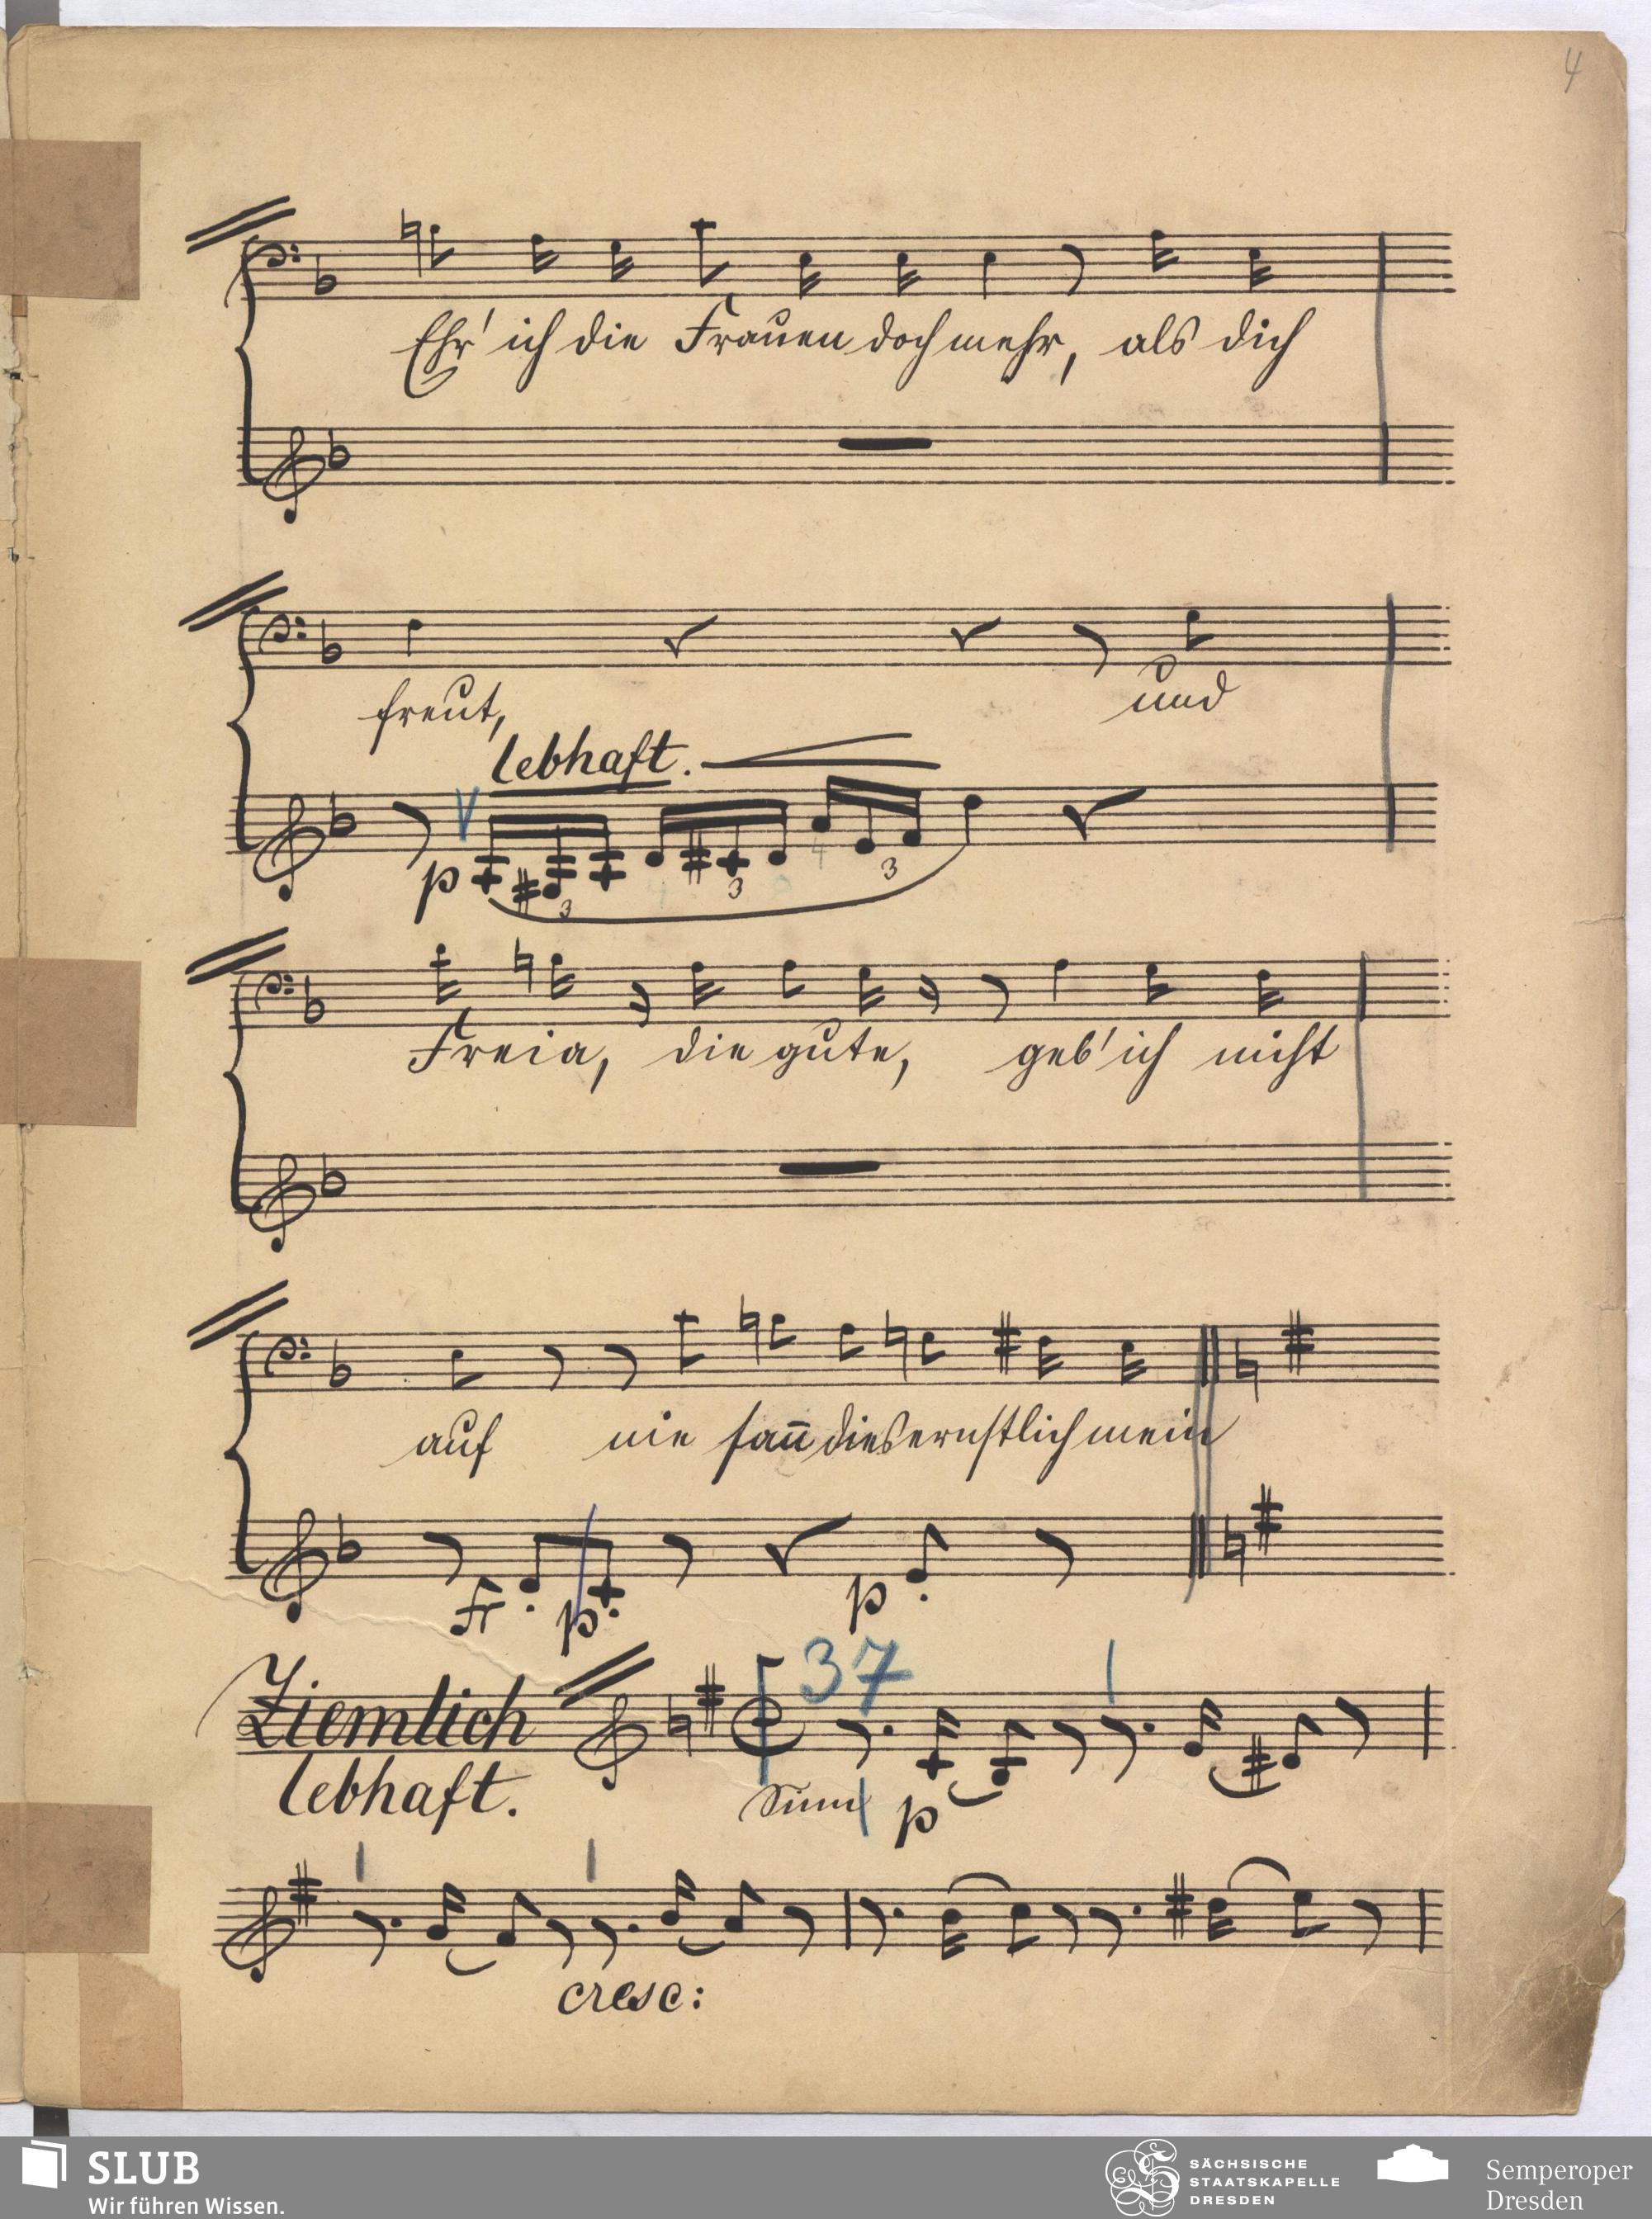 4
Ehr' ich die Frauen doch mehr, als dich
freut, und
lebhaft.
p
3 3 3
4 4
Freia, die gute, geb' ich nicht
auf nie sañ dies ernstlich mein
p p
37
Ziemlich
lebhaft.
Sinn p
cresc:
SLUB
Wir führen Wissen.
SÄCHSISCHE
STAATSKAPELLE
DRESDEN
Semperoper
Dresden